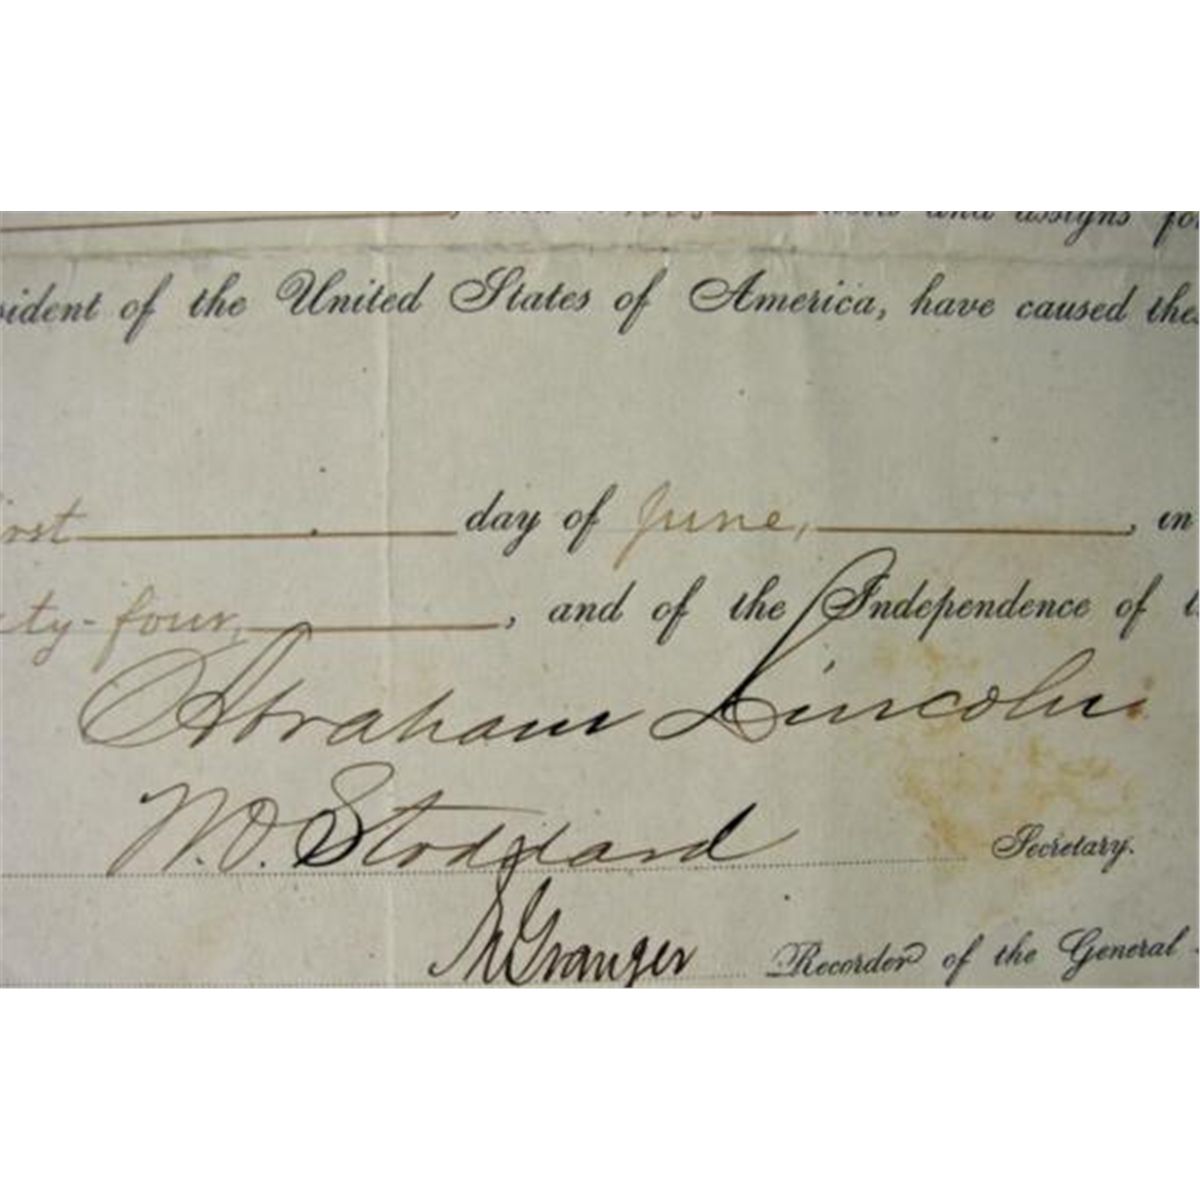 and assigns for
sident of the United States of America, have caused these
irst day of June, in
ty-four, and of the Independence of t
Abraham Lincoln
W. O. Stoddard Secretary.
Granger Recorder of the General